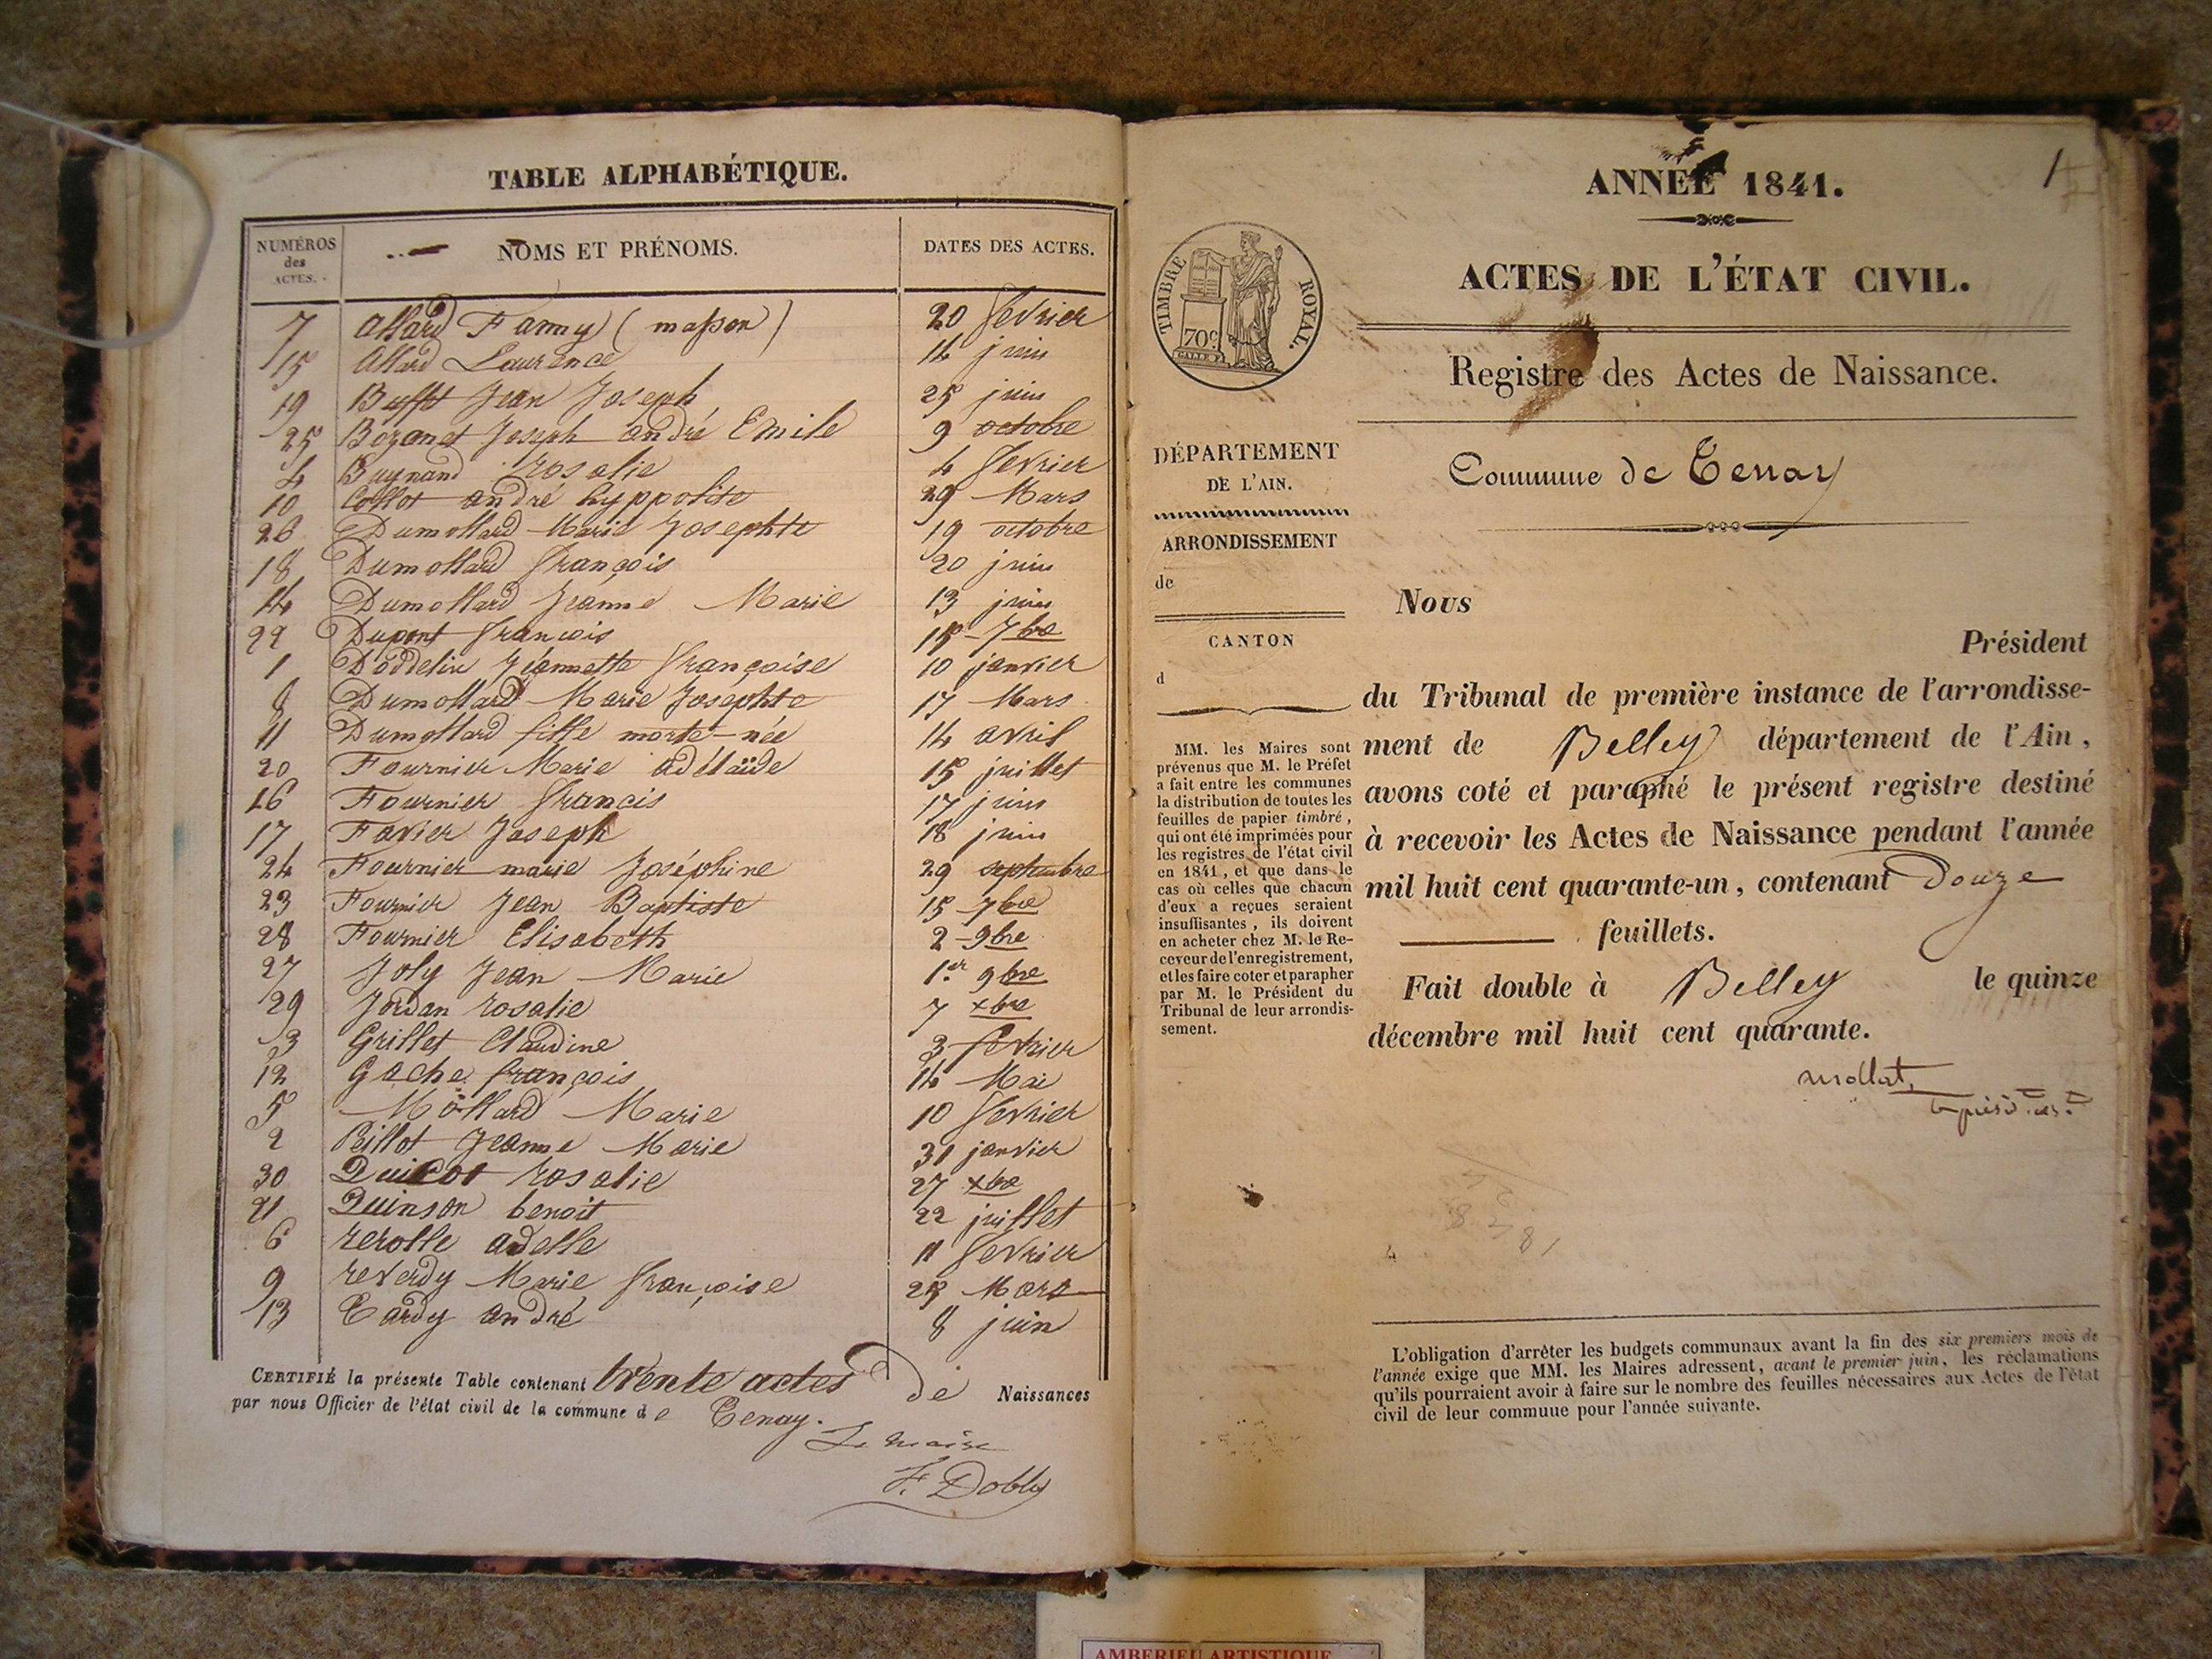 TABLE ALPHABÉTIQUE.
NUMÉROS des ACTES. NOMS ET PRÉNOMS. DATES DES ACTES.
7 Allard Fanny (masson) 20 fevrier
15 Allard Laurence 14 juin
19 Buffet Jean Joseph 25 juin
25 Bozonet Joseph andré Emile 9 octobre
4 Buynand rosalie 4 fevrier
10 Collot andré hyppolite 29 Mars
26 Dumollard Marie Josephte 19 octobre
18 Dumollard françois 20 juin
14 Dumollard Jeanne Marie 13 juin
22 Dupont françois 15 7bre
1 Doddelin Jeannette françoise 10 janvier
8 Dumollard Marie Josephte 17 Mars
11 Dumollard fille morte-née 14 avril
20 Fournier Marie adélaïde 15 juillet
16 Fournier francis 17 juin
17 Favier Joseph 18 juin
24 Fournier marie Joséphine 29 septembre
23 Fournier Jean Baptiste 15 7bre
28 Fournier Elisabeth 2 9bre
27 Joly Jean Marie 1.er 9bre
29 Jordan rosalie 7 xbre
3 Grillet Claudine 3 fevrier
12 Gache françois 14 Mai
5 Mollard Marie 10 fevrier
2 Peillot Jeanne Marie 31 janvier
30 rosalie 27 xbre
21 Quinson benoit 22 juillet
6 rerolle adelle 11 fevrier
9 reverdy Marie françoise 25 Mars
13 Tardy andré 8 juin
CERTIFIÉ la présente Table contenant trente actes de Naissances
par nous Officier de l'état civil de la commune de Tenay.
Le maire
F. Dobly
1
ANNÉE 1841.
ACTES DE L'ÉTAT CIVIL.
TIMBRE ROYAL.
70c.
Registre des Actes de Naissance.
DÉPARTEMENT
DE L'AIN.
Commune de Tenay
ARRONDISSEMENT
de
CANTON
d
MM. les Maires sont
prévenus que M. le Préfet
a fait entre les communes
la distribution de toutes les
feuilles de papier timbré,
qui ont été imprimées pour
les registres de l'état civil
en 1841, et que dans le
cas où celles que chacun
d'eux a reçues seraient
insuffisantes, ils doivent
en acheter chez M. le Re-
ceveur de l'enregistrement,
et les faire coter et parapher
par M. le Président du
Tribunal de leur arrondis-
sement.
Nous
Président
du Tribunal de première instance de l'arrondisse-
ment de Belley département de l'Ain,
avons coté et paraphé le présent registre destiné
à recevoir les Actes de Naissance pendant l'année
mil huit cent quarante-un, contenant Douze
feuillets.
Fait double à Belley le quinze
décembre mil huit cent quarante.
L'obligation d'arrêter les budgets communaux avant la fin des six premiers mois de
l'année exige que MM. les Maires adressent, avant le premier juin, les réclamations
qu'ils pourraient avoir à faire sur le nombre des feuilles nécessaires aux Actes de l'état
civil de leur commune pour l'année suivante.
AMBERIEU ARTISTIQUE